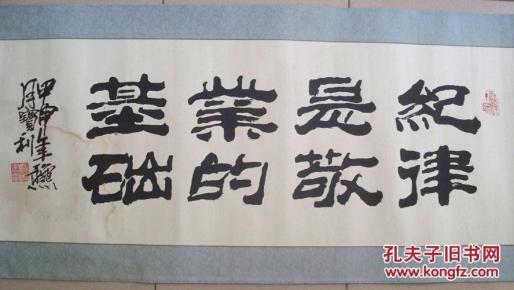 紀律
是敬
業的
基础
甲申年
月寶利
孔夫子旧书网
www.kongfz.com